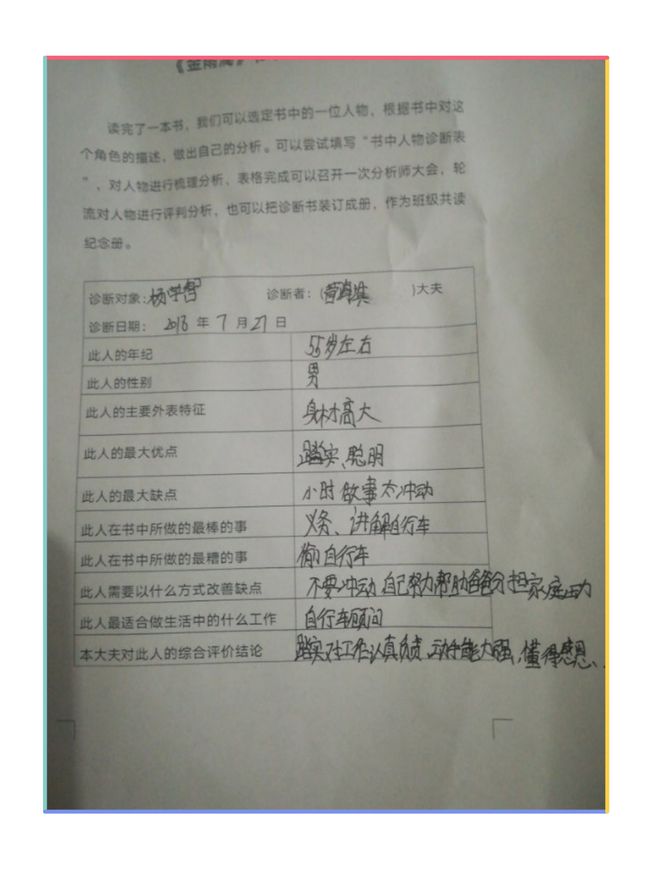 读完了一本书，我们可以选定书中的一位人物，根据书中对这
个角色的描述，做出自己的分析。可以尝试填写“书中人物诊断表
”，对人物进行梳理分析，表格完成可以召开一次分析师大会，轮
流对人物进行评判分析，也可以把诊断书装订成册，作为班级共读
纪念册。
诊断对象：杨学智 诊断者：( )大夫
诊断日期： 2018 年 7 月 27 日
此人的年纪 55岁左右
此人的性别 男
此人的主要外表特征 身材高大
此人的最大优点 踏实、聪明
此人的最大缺点 小时做事太冲动
此人在书中所做的最棒的事 义务、讲解自行车
此人在书中所做的最糟的事 偷自行车
此人需要以什么方式改善缺点 不要冲动 自己努力帮助爸爸分担家庭
此人最适合做生活中的什么工作 自行车顾问
本大夫对此人的综合评价结论 踏实对工作认真负责、动手能力强、懂得感恩、